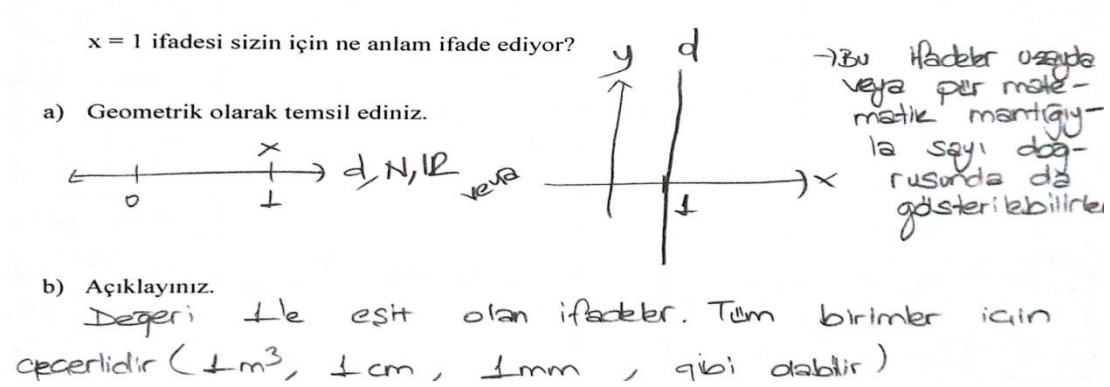 x = 1 ifadesi sizin için ne anlam ifade ediyor?
a) Geometrik olarak temsil ediniz.
x
0 1
d, N, IR
veya
y d
x
1
→Bu ifadeler uzayda
veya pür mate-
matik mantığıy-
la sayı doğ-
rusunda da
gösterilebilirler
b) Açıklayınız.
Değeri 1'e eşit olan ifadeler. Tüm birimler için
geçerlidir (1m³, 1cm, 1mm, gibi olabilir)